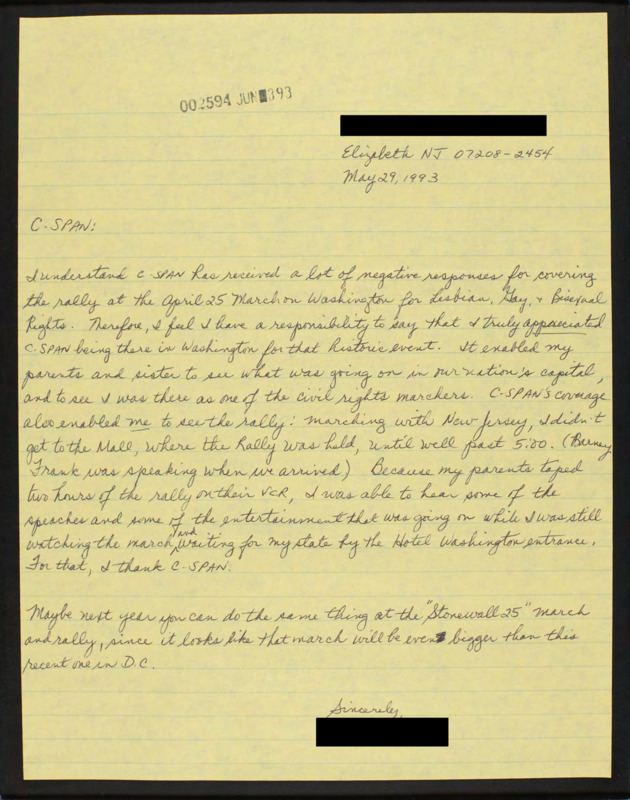 002594 JUN 393
Elizabeth NJ 07208-2454
May 29, 1993
C-SPAN:
I understand C-SPAN has received a lot of negative responses for covering
the rally at the April 25 March on Washington for Lesbian, Gay, & Bisexual
Rights. Therefore, I feel I have a responsibility to say that I truly appreciated
C-SPAN being there in Washington for that historic event. It enabled my
parents and sister to see what was going on in our nation's capital,
and to see I was there as one of the civil rights marchers. C-SPAN's coverage
also enabled me to see the rally: marching with New Jersey, I didn't
get to the Mall, where the Rally was held, until well past 5:00. (Barney
Frank was speaking when we arrived) Because my parents taped
two hours of the rally on their VCR, I was able to hear some of the
speaches and some of the entertainment that was going on while I was still
watching the march and waiting for my state by the Hotel Washington entrance.
For that, I thank C-SPAN.
Maybe next year you can do the same thing at the "Stonewall 25" march
and rally, since it looks like that march will be even bigger than this
recent one in D.C.
Sincerely,